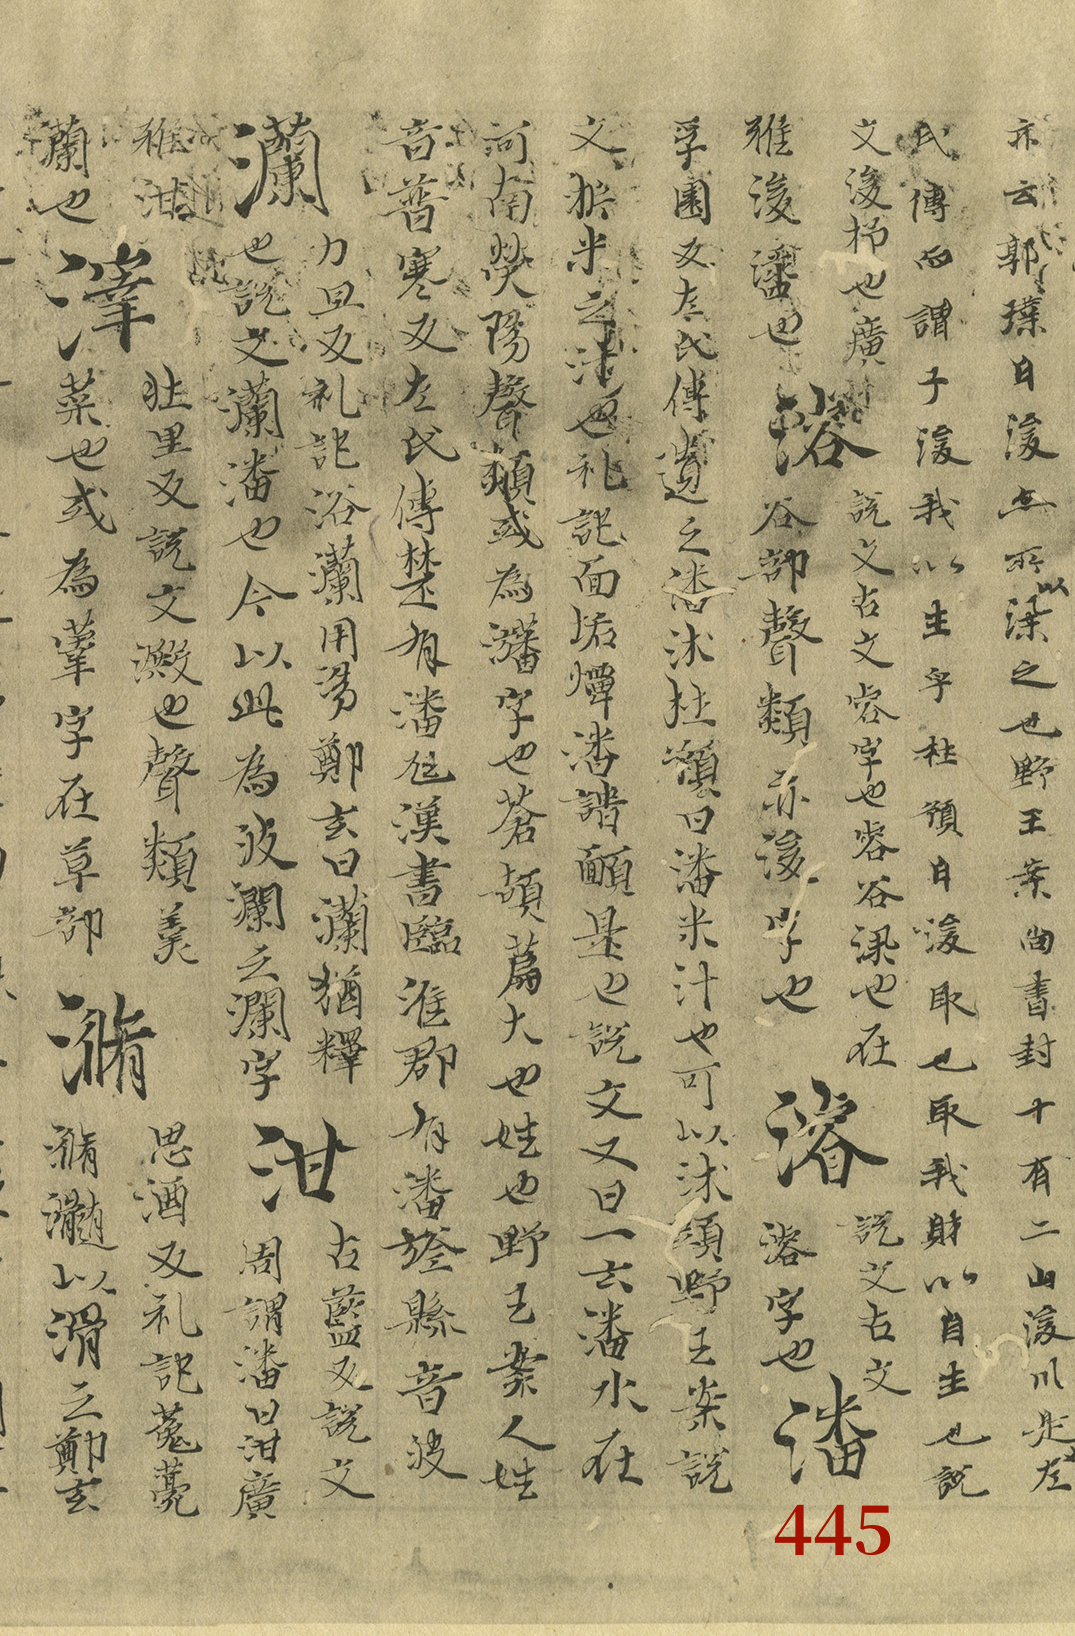 亦云郭璞曰浚亦所以深之也野王案尚書封十有二山浚川是左
氏傳而謂子浚我以生乎杜預曰浚取也取我財以自生也說
文浚杼也廣
雅浚瀊也
㕡
說文古文睿字也㕡谷深也在
谷部聲類亦浚字也
濬
說文古文
濬字也
潘
孚園反左氏傳遺之潘沐杜預曰潘米汁也可以沐頭野王案說
文㭊米之汁也礼記面垢燂潘請靧是也說文又曰一云潘水在
河南熒陽聲類或為瀋字也蒼頡篇大也姓也野王案人姓
音普寒反左氏傳楚有潘尫漢書臨淮郡有潘旌縣音波
灡
力旦反礼記浴灡用湯鄭玄曰灡猶釋
也說文灡潘也今以此為波瀾之瀾字
泔
古藍反說文
周謂潘曰泔廣
雅泔
蘭也
滓
壯里反說文澱也聲類羹
菜也或為䔂字在草部
滫
思酒反礼記菟薧
滫瀡以滑之鄭玄
445